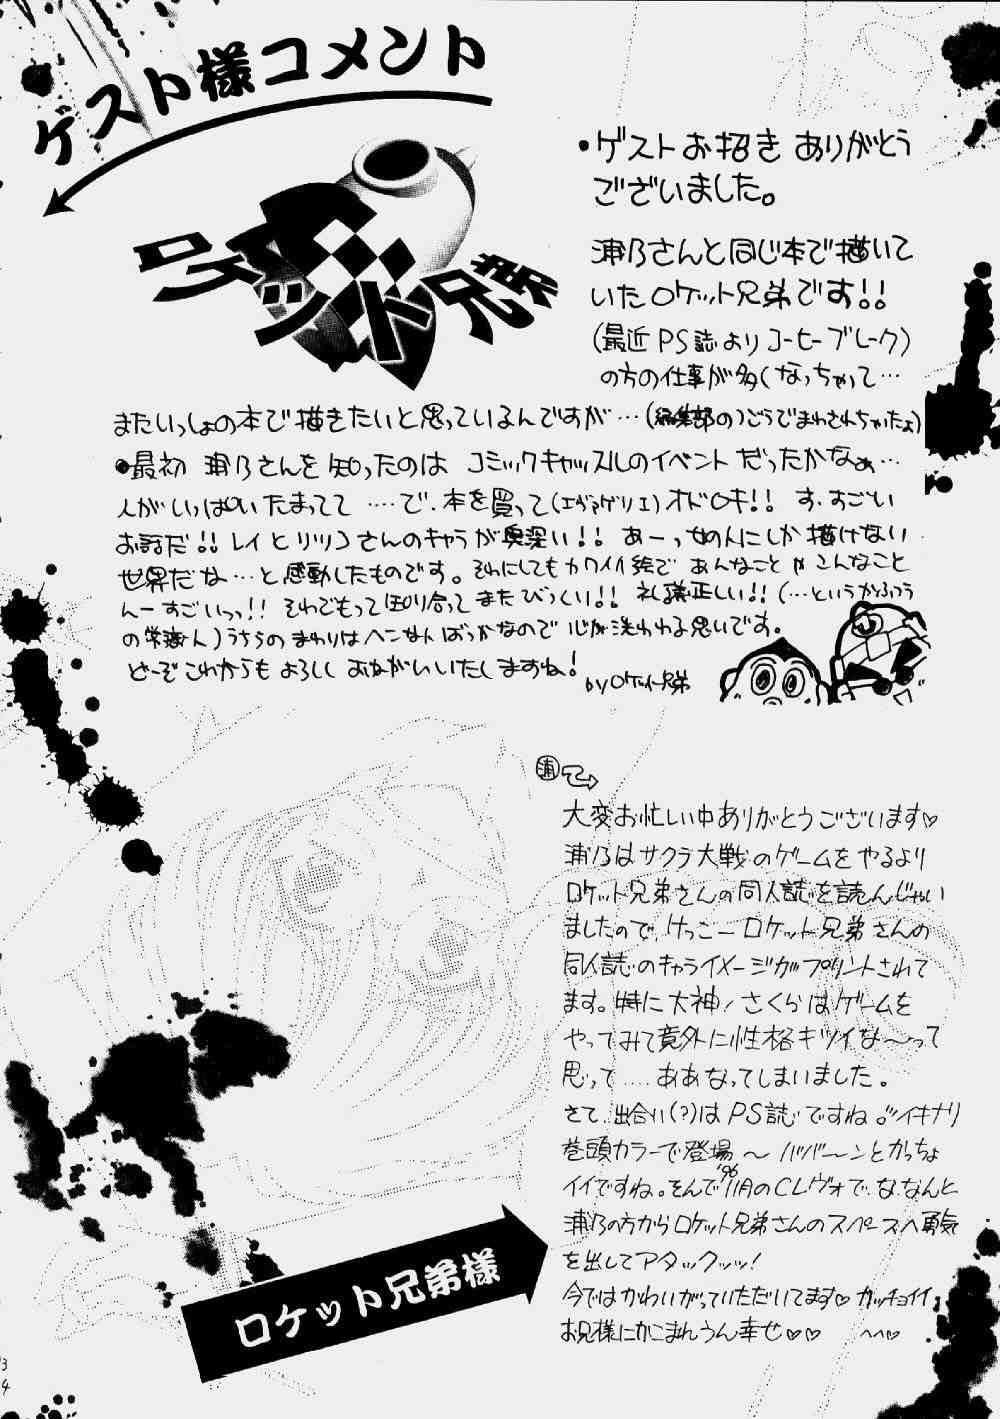 ゲスト様コメント
ロケット兄弟
•ゲストお招き ありがとう
ございました。
浦乃さんと同じ本で描いて
いたロケット兄弟です!!
(最近PS誌よりコーヒーブレーク)
の方の仕事が多くなっちゃって…
またいっしょの本で描きたいと思っているんですが…(編集部のつごうでまわされちゃいたよ)
•最初 浦乃さんを知ったのは コミックキャッスルのイベントだったかなぁ…
人がいっぱいたまってて ……で、本を買って(エヴァゲリエ)オドロキ!! す、すごい
お話だ!! レイとリツコさんのキャラが奥深い!! あーっ女の人にしか描けない
世界だな…と感動したものです。それにしてもカワイイ絵で あんなことやこんなこと
んーすごいっっ!! それでもって 知り合って またびっくい!! 礼儀正しい!! (…というかふつう
の常識人)うちらのまわりはヘンな人ばっかなので 心が洗われる思いです。
どーぞこれからも よろしく おねがいいたしますね!
byロケット兄弟
浦
大変お忙しい中ありがとうございます♡
浦乃はサクラ大戦のゲームをやるより
ロケット兄弟さんの同人誌を読んじゃい
ましたので、けっこーロケット兄弟さんの
同人誌のキャライメージがプリントされて
ます。特に大神!さくらはゲームを
やってみて意外に性格キツイな〜って
思って……ああなってしまいました。
さて、出合い(?)はPS誌ですね。イキナリ
巻頭カラーで登場〜ババーンとかっちょ
イイですね。そんで'96 11月のCレヴォで、な、なんと
浦乃の方からロケット兄弟さんのスペースへ勇気
を出してアタックッッ!
今ではかわいがっていただいてます♡ カッチョイイ
お兄様にかこまれうん幸せ♡♡ ^^♡
ロケット兄弟様
34